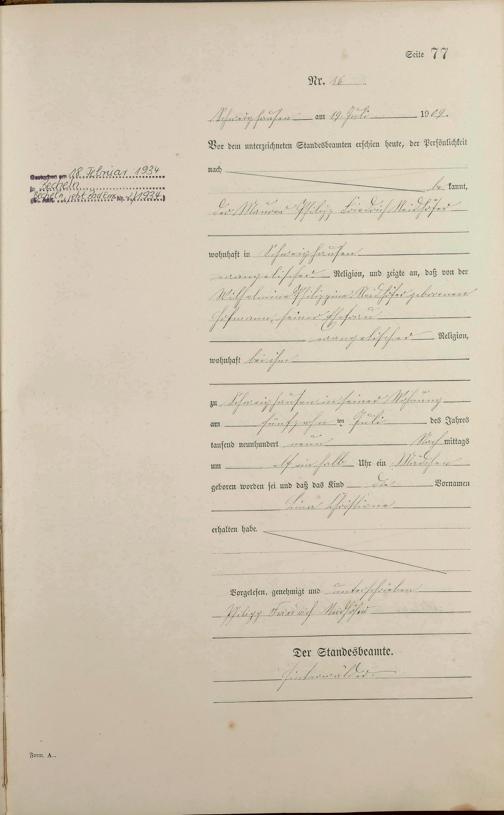 Seite 77
Nr. 16
Schweighausen am 19. Juli 1909.
Vor dem unterzeichneten Standesbeamten erschien heute, der Persönlichkeit
nach be kannt,
der Maurer Philipp Friedrich Neidhöfer
wohnhaft in Schweighausen
evangelischer Religion, und zeigte an, daß von der
Wilhelmine Philippine Neidhöfer geborenen
Hofmann, seiner Ehefrau
evangelischer Religion,
wohnhaft bei ihm
zu Schweighausen in seiner Wohnung
am fünfzehn ten Juli des Jahres
tausend neunhundert neun Nach mittags
um elf ein halb Uhr ein Mädchen
geboren worden sei und daß das Kind die Vornamen
Lina Christiane
erhalten habe.
Vorgelesen, genehmigt und unterschrieben
Philipp Friedrich Neidhöfer
Der Standesbeamte.
Hinterwälder
Gestorben am 18. Februar 1934
in
Nr. 1/1934
Form. A.